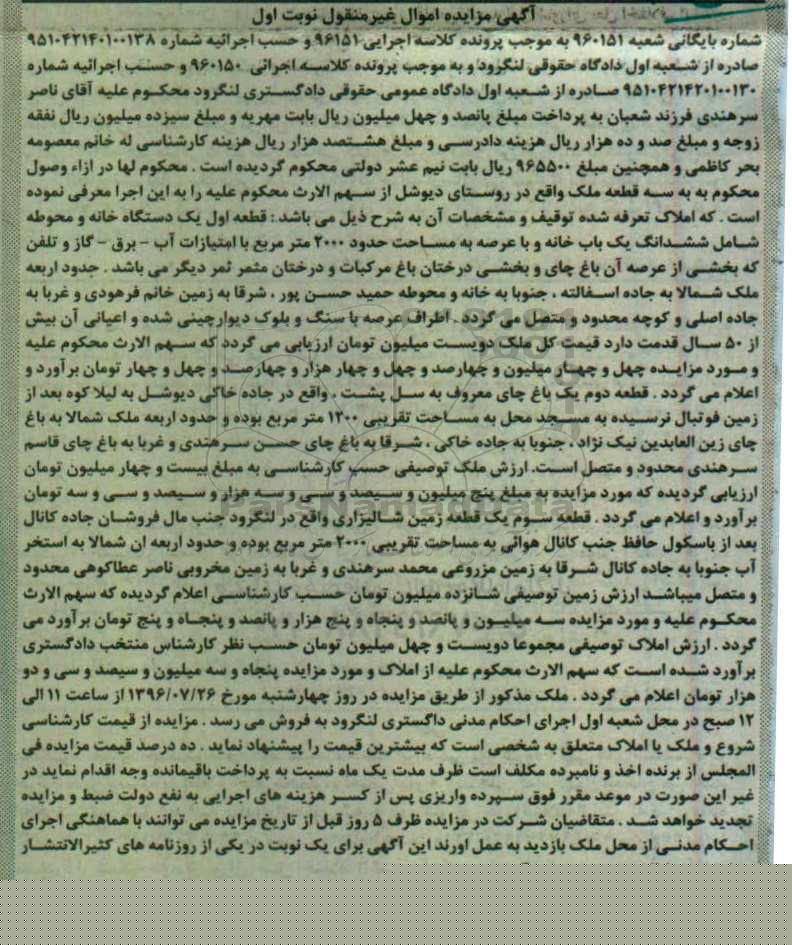 آگهی مزایده اموال غیرمنقول نوبت اول
شماره بایگانی شعبه ۹۶۰۱۵۱ به موجب پرونده کلاسه اجرایی ۹۶۱۵۱ و حسب اجرائیه شماره ۹۵۱۰۴۲۱۴۰۱۰۰۱۳۸
صادره از شعبه اول دادگاه حقوقی لنگرود و به موجب پرونده کلاسه اجرائی ۹۶۰۱۵۰ و حسب اجرائیه شماره
۹۵۱۰۴۲۱۴۲۰۱۰۰۱۳۰ صادره از شعبه اول دادگاه عمومی حقوقی دادگستری لنگرود محکوم علیه آقای ناصر
سرهندی فرزند شعبان به پرداخت مبلغ پانصد و چهل میلیون ریال بابت مهریه و مبلغ سیزده میلیون ریال نفقه
زوجه و مبلغ صد و ده هزار ریال هزینه دادرسی و مبلغ هشتصد هزار ریال هزینه کارشناسی له خانم معصومه
بحر کاظمی و همچنین مبلغ ۹۶۵۵۰۰ ریال بابت نیم عشر دولتی محکوم گردیده است . محکوم لها در ازاء وصول
محکوم به به سه قطعه ملک واقع در روستای دیوشل از سهم الارث محکوم علیه را به این اجرا معرفی نموده
است . که املاک تعرفه شده توقیف و مشخصات آن به شرح ذیل می باشد : قطعه اول یک دستگاه خانه و محوطه
شامل ششدانگ یک باب خانه و با عرصه به مساحت حدود ۲۰۰۰ متر مربع با امتیازات آب - برق - گاز و تلفن
که بخشی از عرصه آن باغ چای و بخشی درختان باغ مرکبات و درختان مثمر ثمر دیگر می باشد . حدود اربعه
ملک شمالا به جاده اسفالته ، جنوبا به خانه و محوطه حمید حسن پور ، شرقا به زمین خانم فرهودی و غربا به
جاده اصلی و کوچه محدود و متصل می گردد . اطراف عرصه با سنگ و بلوک دیوارچینی شده و اعیانی آن بیش
از ۵۰ سال قدمت دارد قیمت کل ملک دویست میلیون تومان ارزیابی می گردد که سهم الارث محکوم علیه
و مورد مزایده چهل و چهار میلیون و چهارصد و چهل و چهار هزار و چهارصد و چهل و چهار تومان برآورد و
اعلام می گردد . قطعه دوم یک باغ چای معروف به سل پشت ، واقع در جاده خاکی دیوشل به لیلا کوه بعد از
زمین فوتبال نرسیده به مسجد محل به مساحت تقریبی ۱۲۰۰ متر مربع بوده و حدود اربعه ملک شمالا به باغ
چای زین العابدین نیک نژاد ، جنوبا به جاده خاکی ، شرقا به باغ چای حسن سرهندی و غربا به باغ چای قاسم
سرهندی محدود و متصل است. ارزش ملک توصیفی حسب کارشناسی به مبلغ بیست و چهار میلیون تومان
ارزیابی گردیده که مورد مزایده به مبلغ پنج میلیون و سیصد و سی و سه هزار و سیصد و سی و سه تومان
برآورد و اعلام می گردد . قطعه سوم یک قطعه زمین شالیزاری واقع در لنگرود جنب مال فروشان جاده کانال
بعد از باسکول حافظ جنب کانال هوائی به مساحت تقریبی ۲۰۰۰ متر مربع بوده و حدود اربعه ان شمالا به استخر
آب جنوبا به جاده کانال شرقا به زمین مزروعی محمد سرهندی و غربا به زمین مخروبی ناصر عطاکوهی محدود
و متصل میباشد ارزش زمین توصیفی شانزده میلیون تومان حسب کارشناسی اعلام گردیده که سهم الارث
محکوم علیه و مورد مزایده سه میلیون و پانصد و پنجاه و پنج هزار و پانصد و پنجاه و پنج تومان برآورد می
گردد . ارزش املاک توصیفی مجموعا دویست و چهل میلیون تومان حسب نظر کارشناس منتخب دادگستری
برآورد شده است که سهم الارث محکوم علیه از املاک و مورد مزایده پنجاه و سه میلیون و سیصد و سی و دو
هزار تومان اعلام می گردد . ملک مذکور از طریق مزایده در روز چهارشنبه مورخ ۱۳۹۶/۰۷/۲۶ از ساعت ۱۱ الی
۱۲ صبح در محل شعبه اول اجرای احکام مدنی داگستری لنگرود به فروش می رسد . مزایده از قیمت کارشناسی
شروع و ملک یا املاک متعلق به شخصی است که بیشترین قیمت را پیشنهاد نماید . ده درصد قیمت مزایده فی
المجلس از برنده اخذ و نامبرده مکلف است ظرف مدت یک ماه نسبت به پرداخت باقیمانده وجه اقدام نماید در
غیر این صورت در موعد مقرر فوق سپرده واریزی پس از کسر هزینه های اجرایی به نفع دولت ضبط و مزایده
تجدید خواهد شد . متقاضیان شرکت در مزایده ظرف ۵ روز قبل از تاریخ مزایده می توانند با هماهنگی اجرای
احکام مدنی از محل ملک بازدید به عمل اورند این آگهی برای یک نوبت در یکی از روزنامه های کثیرالانتشار
ParsNamadData